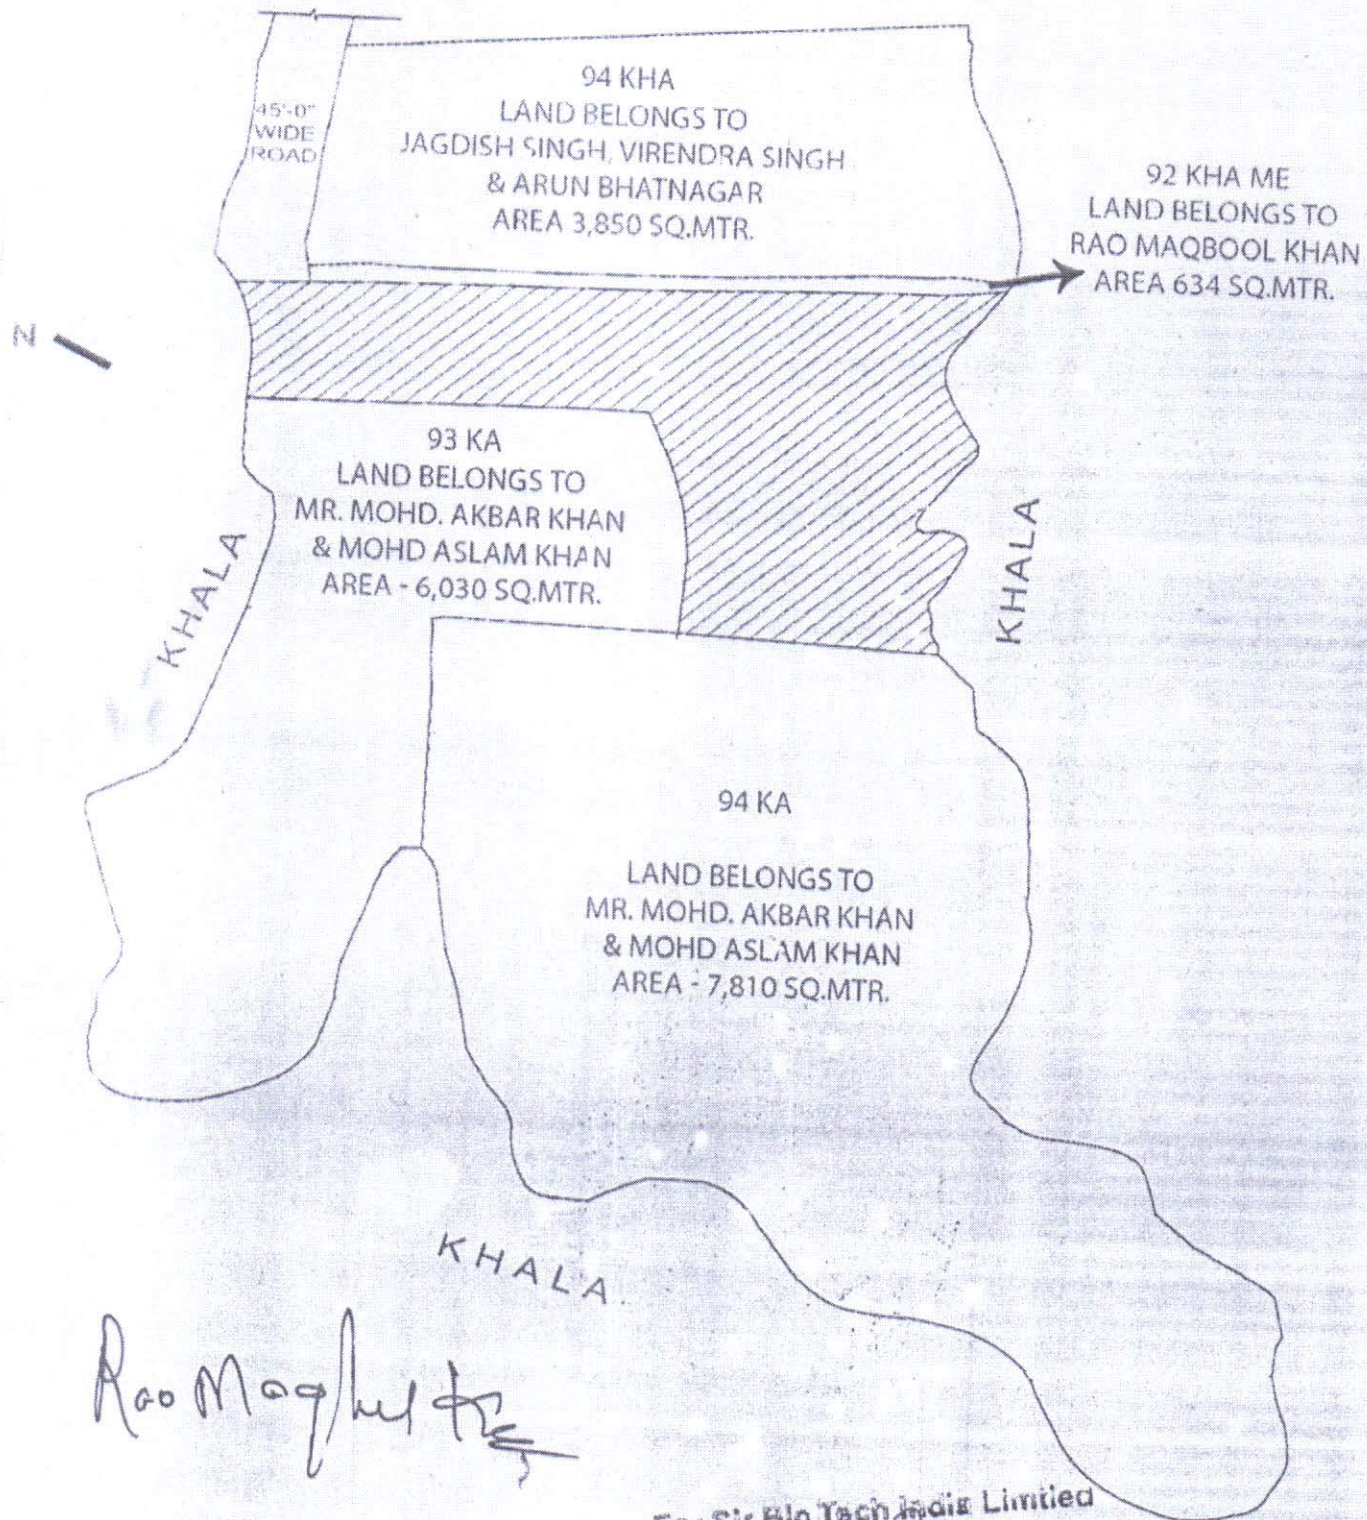 45'-0"
WIDE
ROAD
94 KHA
LAND BELONGS TO
JAGDISH SINGH, VIRENDRA SINGH
& ARUN BHATNAGAR
AREA 3,850 SQ.MTR.
92 KHA ME
LAND BELONGS TO
RAO MAQBOOL KHAN
AREA 634 SQ.MTR.
N
93 KA
LAND BELONGS TO
MR. MOHD. AKBAR KHAN
& MOHD ASLAM KHAN
AREA - 6,030 SQ.MTR.
KHALA
KHALA
94 KA
LAND BELONGS TO
MR. MOHD. AKBAR KHAN
& MOHD ASLAM KHAN
AREA - 7,810 SQ.MTR.
KHALA
Rao
For Sir Bio Tech India Limtied